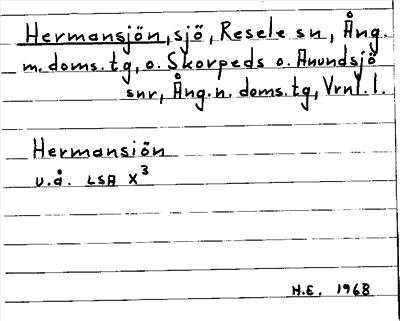 Hermansjön, sjö, Resele sn, Ång.
m. doms.tg, o. Skorpeds o. Anundsjö
snr, Ång. n. doms.tg, Vrnl. l.
Hermansiön
u.å. LSA X³
H.E. 1968